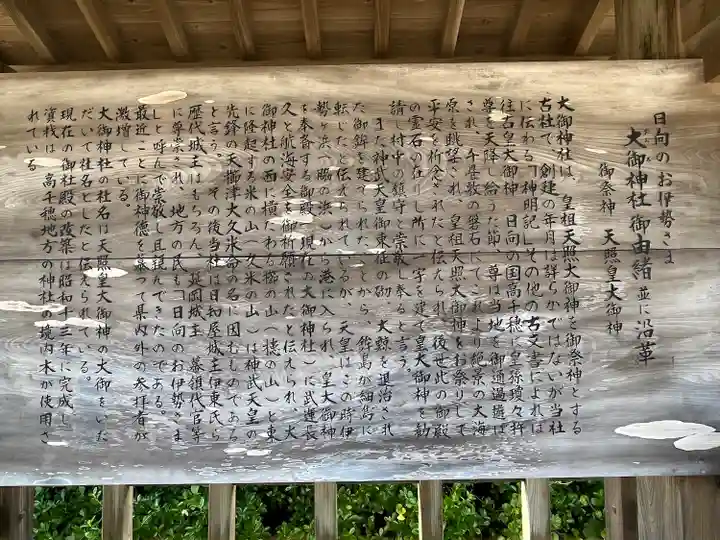 日向のお伊勢さま
大御神社御由緒 並に沿革
御祭神 天照皇大御神
大御神社は、皇祖天照大御神を御祭神とする
古社で創建の年月は詳らかではないが当社
に伝わる「神明記」その他の古文書によれば
往古皇大御神、日向の国高千穂に皇孫瓊々杵
尊を天降し給うた節、尊は当地を御通過遊ば
され、千畳敷の磐石にてこれより絶景の大海
原を眺望され、皇祖天照大御神をお祭りして
平安を祈念されたと伝えられ、後世此の御殿
の霊石の在りし所に一宇を建て皇大御神を勧
請し村中の鎮守と崇敬し奉ると言う。
また神武天皇御東征の砌、大鯨を退治され
た御鉾を建てられたことから、鉾島が細島に
転じたと伝えられているが、天皇はこの時伊
勢ヶ浜(脇の浜)から港に入られ、皇大御神
を奉斎する御殿(現在の大御神社)に武運長
久と航海安全を御祈願されたと伝えられ、大
御神社の西に横たわる櫛の山(徳の山)と東
に隆起する米の山(久米の山)は神武天皇の
先鋒の天櫛津大久米命の名に因むものである
と言う。その後当社は日知屋城主伊東氏ら
歴代城主はもちろん、延岡城主、幕領代官等
に尊崇され、地方の民も「日向のお伊勢さま
」と呼んで崇敬し且親んできたのである。
最近ことに御神徳を慕って県内外の参拝者が
激増している。
大御神社の社名は天照皇大御神の大御をいた
だいて社名としたと伝えられている。
現在の御社殿の改築は昭和十三年に完成し
資材は、高千穂地方の神社の境内木が使用さ
れている